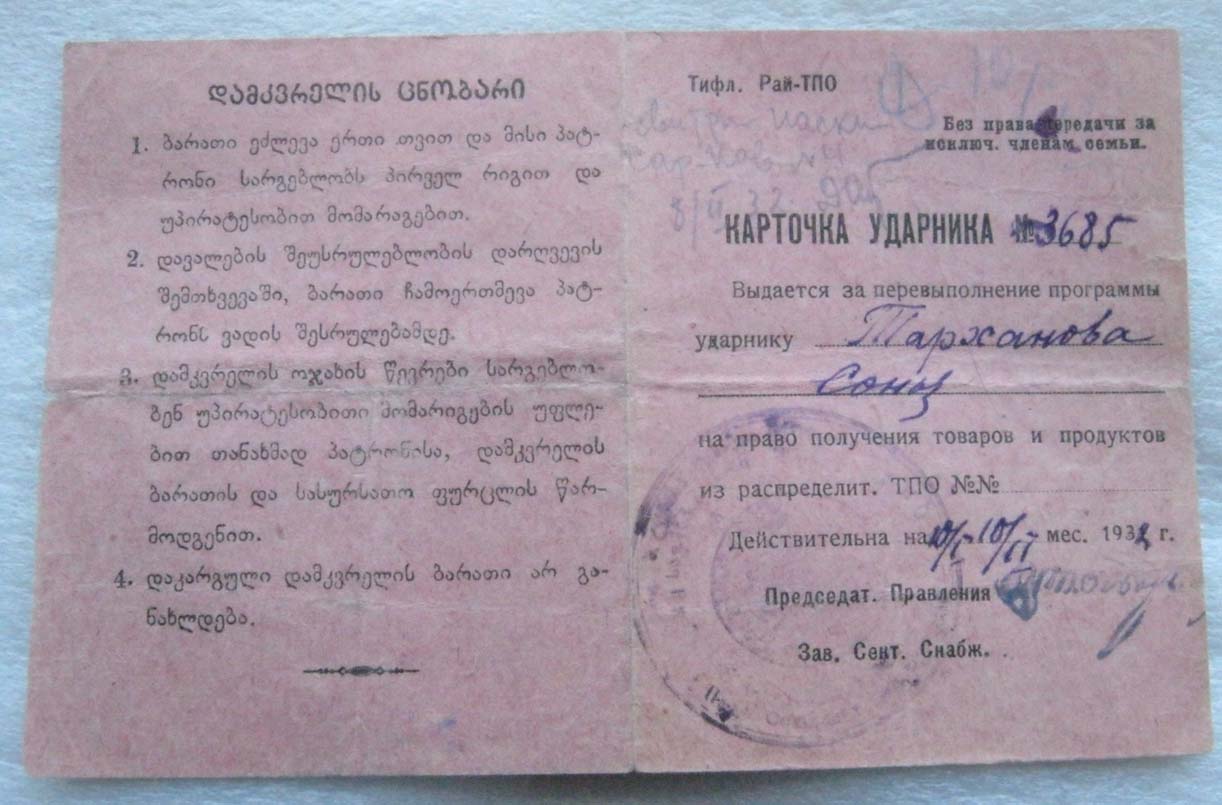 დამკვრელის ცნობარი
1. ბარათი ეძლევა ერთი თვით და მისი პატ-
რონი სარგებლობს პირველ რიგით და
უპირატესობით მომარაგებით.
2. დავალების შეუსრულებლობის დარღვევის
შემთხვევაში, ბარათი ჩამოერთმევა პატ-
რონს ვადის შესრულებამდე.
3. დამკვრელის ოჯახის წევრები სარგებლო-
ბენ უპირატესობითი მომარიგების უფლე-
ბით თანახმად პატრონისა, დამკვრელის
ბარათის და სასურსათო ფურცლის წარ-
მოდგენით.
4. დაკარგული დამკვრელის ბარათი არ გა-
ნახლდება.
Тифл. Рай-ТПО
Без права передачи за
исключ. членам семьи.
КАРТОЧКА УДАРНИКА № 3685
Выдается за перевыполнение программы
ударнику Тарханова
Соня
на право получения товаров и продуктов
из распределит. ТПО №№
Действительна на мес. 1932 г.
Председат. Правления
Зав. Сект. Снабж.